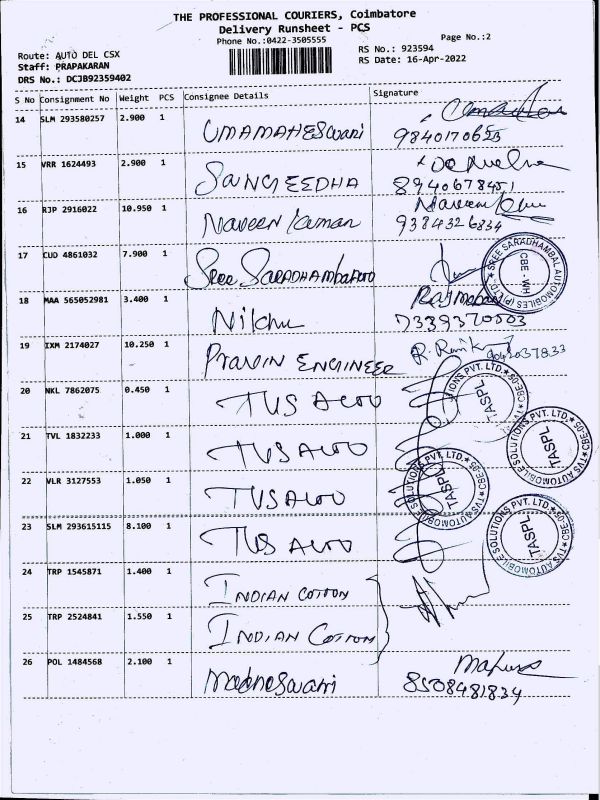 THE PROFESSIONAL COURIERS, Coimbatore
Delivery Runsheet - PCS
Phone No.:0422-3505555
Page No.:2
Route: AUTO DEL CSX
RS No.: 923594
Staff: PRAPAKARAN
RS Date: 16-Apr-2022
DRS No.: DCJB92359402
S No Consignment No Weight PCS Consignee Details Signature
14 SLM 293580257 2.900 1 UMAMAHESwari
9840170653
15 VRR 1624493 2.900 1 SANGEEDHA
8940678451
16 RJP 2916022 10.950 1 Naveen Kumar
9384326834
17 CUD 4861032 7.900 1 Sree SARADHAmbal Auto
SREE SARADHAMBAL AUTOMOBILES (P) LTD. CBE-WH
18 MAA 565052981 3.400 1
7339370503
19 IXM 2174027 10.250 1 PRAVIN ENGINEER
9043037833
20 NKL 7862075 0.450 1 TVS Auto
TVS AUTOMOBILE SOLUTIONS PVT. LTD. CBE-05 TASPL
21 TVL 1832233 1.000 1 TVS Auto
TVS AUTOMOBILE SOLUTIONS PVT. LTD. CBE-05 TASPL
22 VLR 3127553 1.050 1 TVS Auto
TVS AUTOMOBILE SOLUTIONS PVT. LTD. CBE-05 TASPL
23 SLM 293615115 8.100 1 TVS Auto
TVS AUTOMOBILE SOLUTIONS PVT. LTD. CBE-05 TASPL
24 TRP 1545871 1.400 1 INDIAN COTTON
25 TRP 2524841 1.550 1 INDIAN COTTON
26 POL 1484568 2.100 1
8508481834